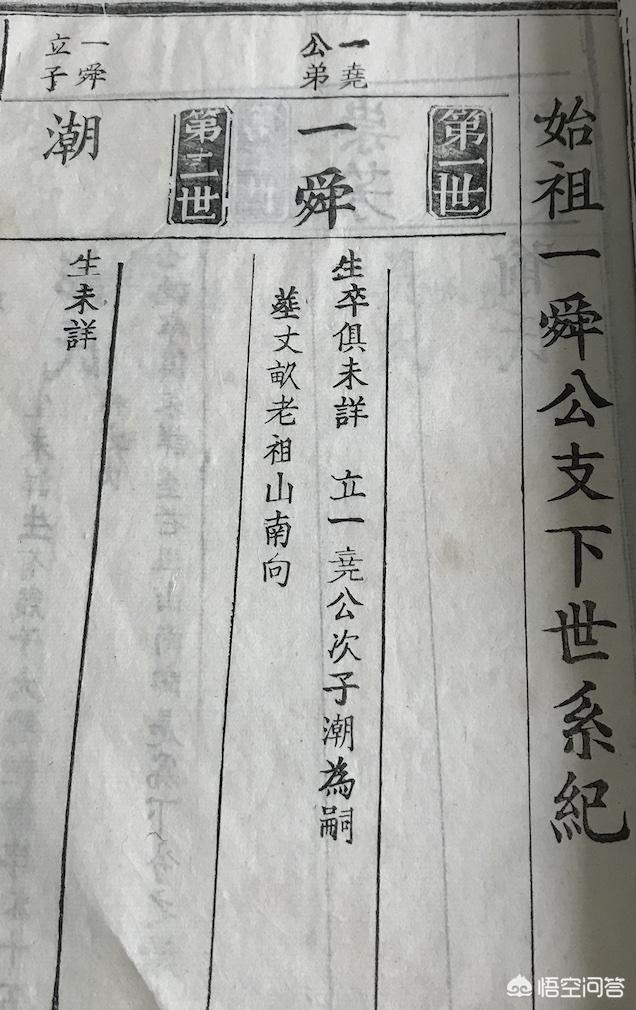 始祖一舜公支下世系紀
第一世
一堯
公弟
一舜
生卒俱未詳 立一堯公次子潮為嗣
塟丈畝老祖山南向
第二世
一舜
立子
潮
生未詳
悟空问答